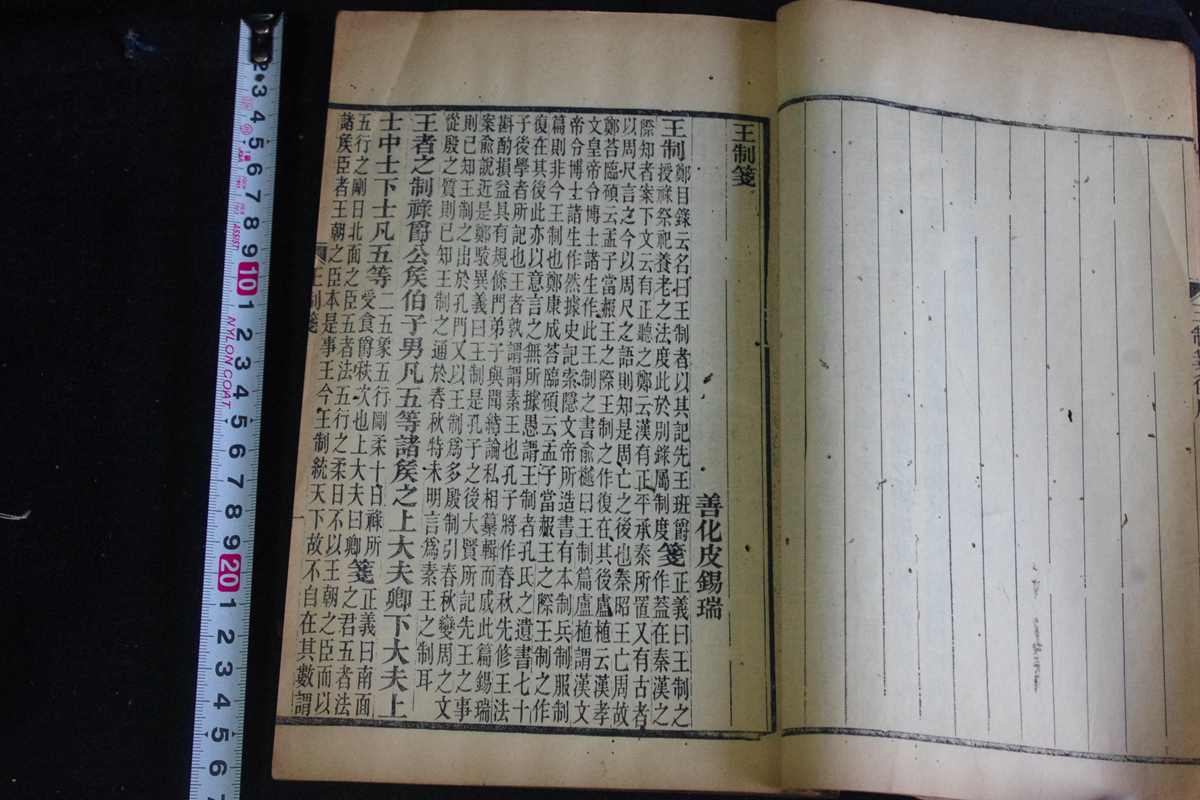 王制箋
善化皮錫瑞
王制
鄭目錄云名曰王制者以其記先王班爵
授祿祭祀養老之法度此於別錄屬制度
箋
正義曰王制之
作蓋在秦漢之
際知者案下文云有正聽之鄭云漢有正平承秦所置又有古者
以周尺言之今以周尺之語則知是周亡之後也秦昭王亡周故
鄭荅臨碩云孟子當赧王之際王制之作復在其後盧植云漢孝
文皇帝令博士諸生作此王制之書俞樾曰王制篇盧植謂漢文
帝令博士諸生作然據史記索隱文帝所造書有本制兵制服制
篇則非今王制也鄭康成荅臨碩云孟子當赧王之際王制之作
復在其後此亦以意言之無所據愚謂王制者孔氏之遺書七十
子後學者所記也王者孰謂謂素王也孔子將作春秋先修王法
斟酌損益具有規條門弟子與聞緒論私相纂輯而成此篇錫瑞
案俞說近是鄭駁異義曰王制是孔子之後大賢所記先王之事
則已知王制之出於孔門又以王制爲多殷制引春秋變周之文
從殷之質則已知王制之通於春秋特未明言爲素王之制耳
王者之制祿爵公侯伯子男凡五等諸侯之上大夫卿下大夫上
士中士下士凡五等
二五象五行剛柔十日祿所
受食爵秩次也上大夫曰卿
箋
正義曰南面
之君五者法
五行之剛日北面之臣五者法五行之柔日不以王朝之臣而以
諸侯臣者王朝之臣本是事王今王制統天下故不自在其數謂
王制箋
2 3 4 5 6 7 8 9 10 1 2 3 4 5 6 7 8 9 20 1 2 3 4 5 6 7
NYLON COAT